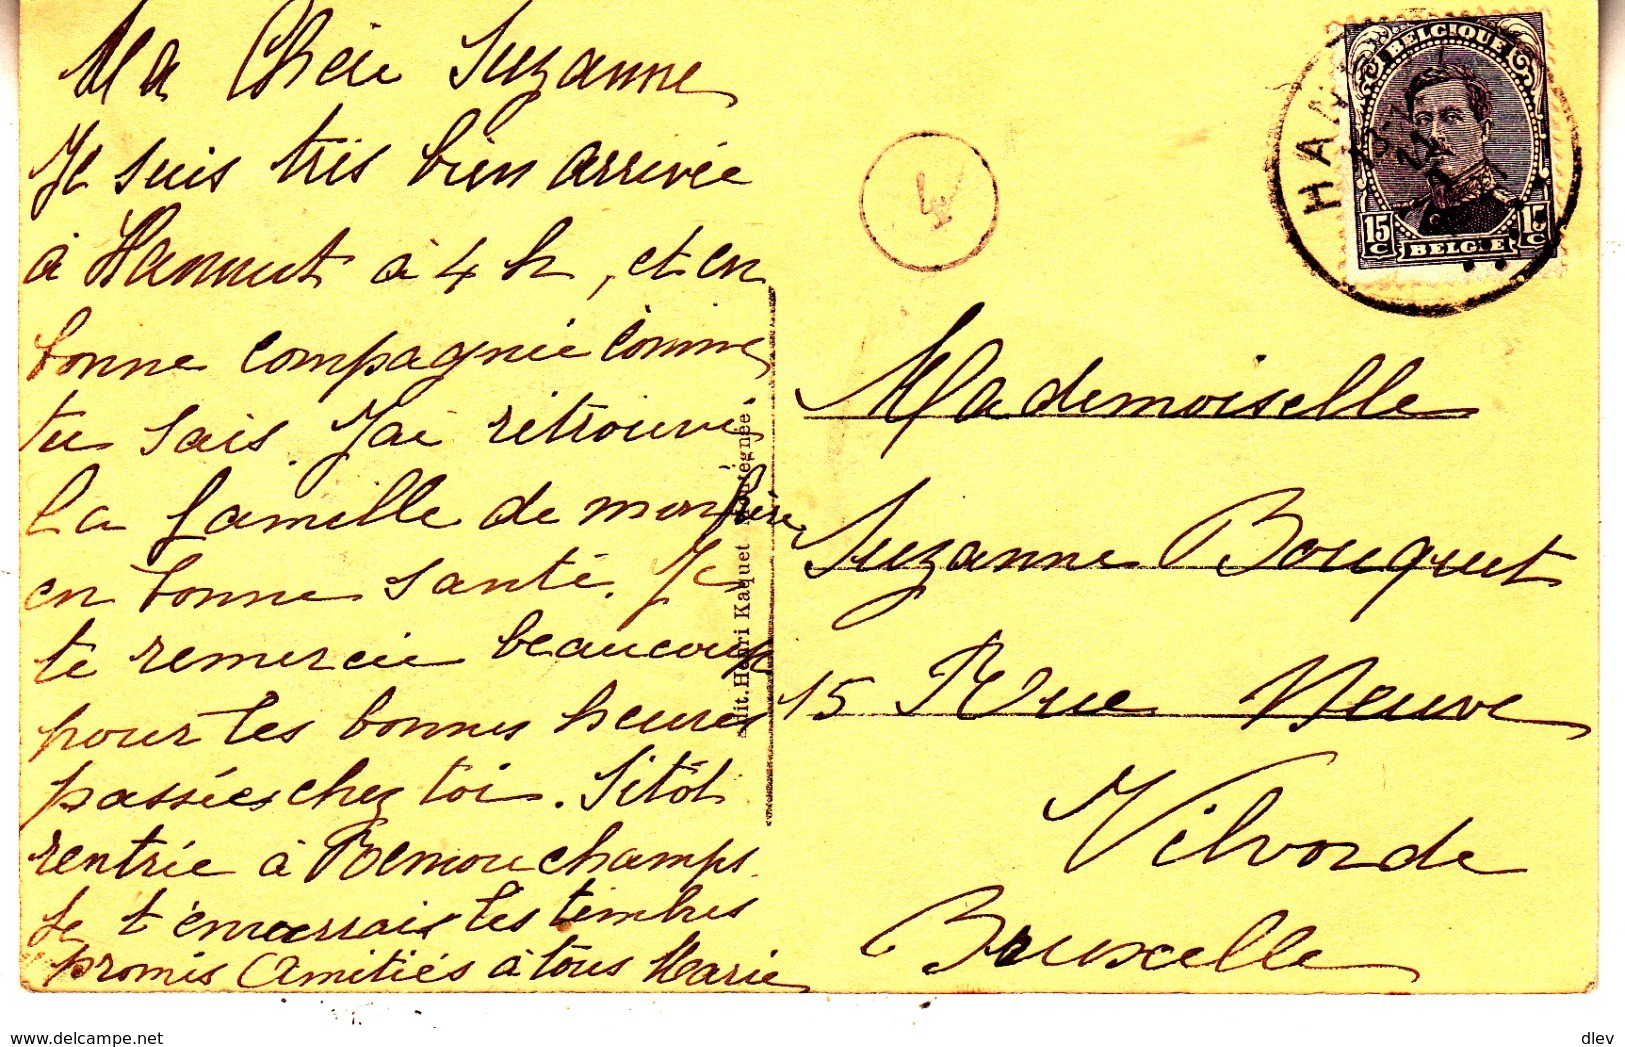 Ma Chère Suzanne
Je suis très bien arrivée
à Hannut à 4 h, et en
bonne compagnie comme
tu sais. J'ai retrouvé
la famille de mon frère
en bonne santé. Je
te remercie beaucoup
pour les bonnes heures
passées chez toi. Sitôt
rentrée à Remouchamps
je t'enverrais les timbres
promis Amitiés à tous Marie
Edit. Henri Kaquet Montegnée
4
BELGIQUE
15 C
BELGIË
HAN
Mademoiselle
Suzanne Bouquet
15 Rue Neuve
Vilvorde
Bruxelle
www.delcampe.net
dlev